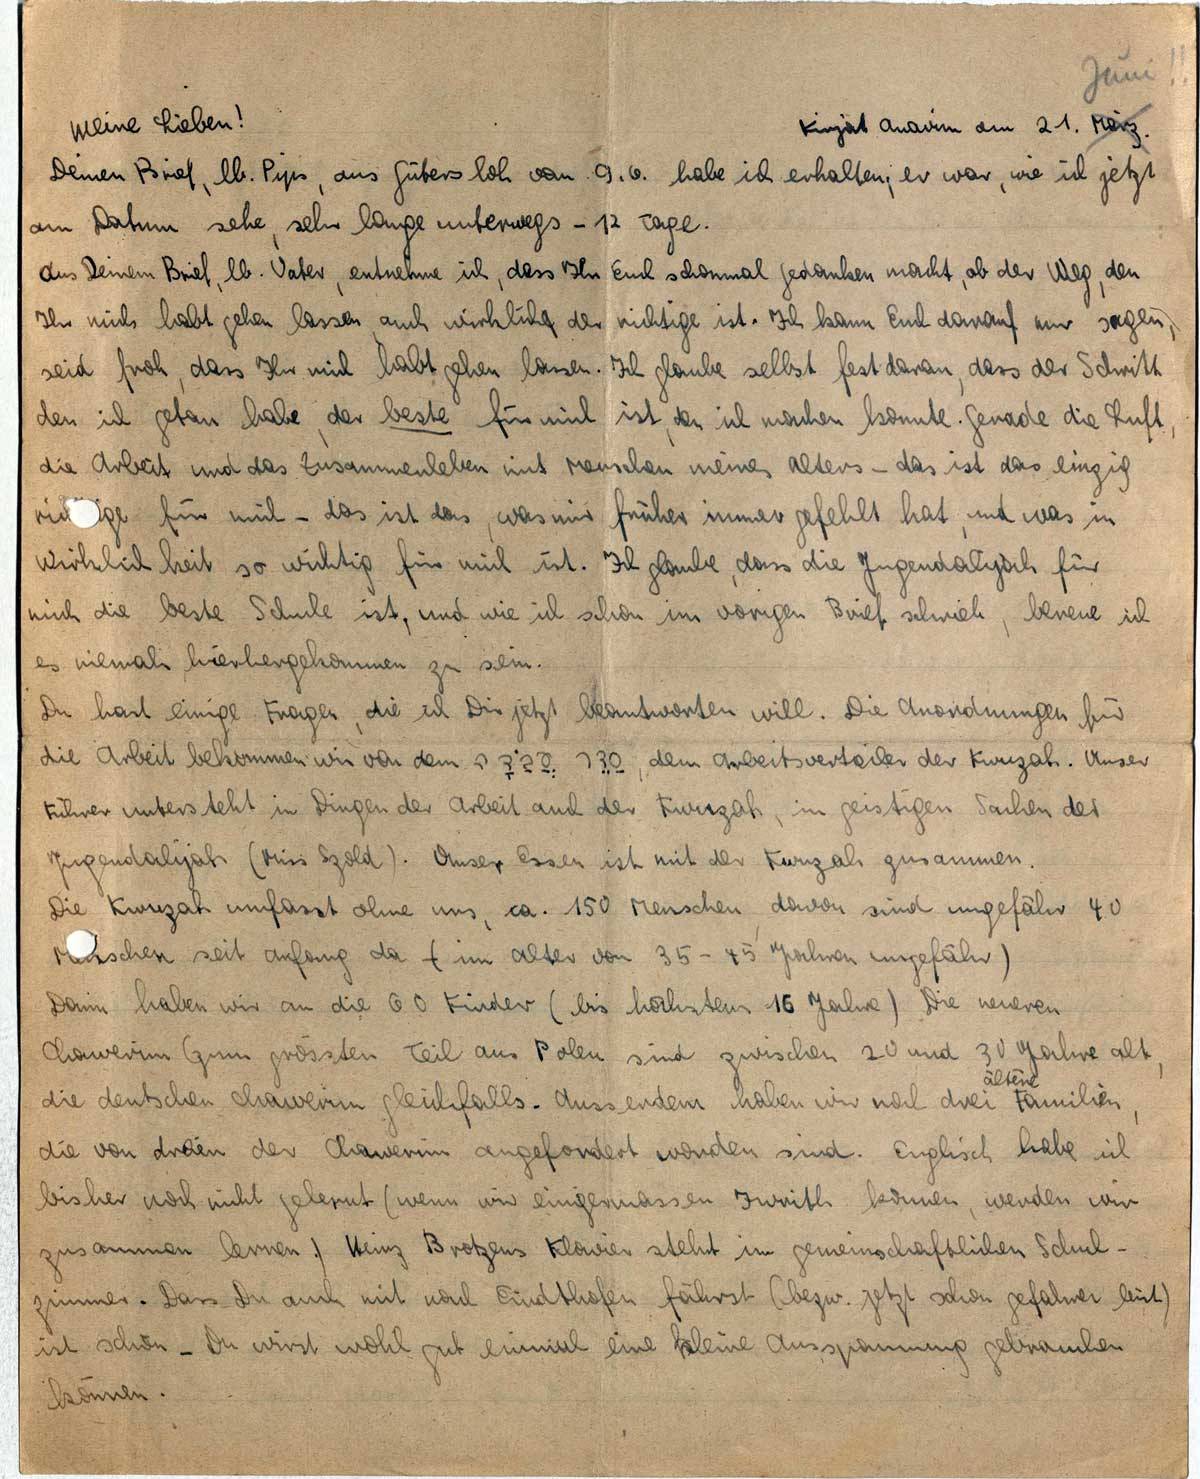 Juni!!
Meine Lieben! Kirjat Anavim am 21. März.
Deinen Brief, lb. Pips, aus Gütersloh vom 9.6. habe ich erhalten; er war, wie ich jetzt
am Datum sehe, sehr lange unterwegs – 12 Tage.
Aus Deinem Brief, lb. Vater, entnehme ich, dass Ihr Euch schonmal Gedanken macht, ob der Weg, den
Ihr mich habt gehen lassen auch wirklich der richtige ist. Ich kann Euch darauf nur sagen,
seid froh, dass Ihr mich habt gehen lassen. Ich glaube selbst fest daran, dass der Schritt
den ich getan habe, der beste für mich ist, den ich machen konnte. Gerade die Luft,
die Arbeit und das Zusammenleben mit Menschen meines Alters – das ist das einzig
richtige für mich – das ist das, was mir früher immer gefehlt hat, und was in
Wirklichkeit so wichtig für mich ist. Ich glaube, dass die Jugendalijah für
mich die beste Schule ist, und wie ich schon im vorigen Brief schrieb, bereue ich
es niemals hierhergekommen zu sein.
Du hast einige Fragen, die ich Dir jetzt beantworten will. Die Anordnungen für
die Arbeit bekommen wir von dem סַדְרָן, dem Arbeitsverteiler der Kwuzah. Unser
Führer untersteht in Dingen der Arbeit auch der Kwuzah, in geistigen Sachen der
Jugendalijah (Miss Szold). Unser Essen ist mit der Kwuzah zusammen.
Die Kwuzah umfasst ohne uns, ca. 150 Menschen davon sind ungefähr 40
Menschen seit Anfang da (im Alter von 35–45 Jahren ungefähr)
Dann haben wir an die 60 Kinder (bis höchstens 16 Jahre) Die neueren
Chawerim (zum grössten Teil aus Polen sind zwischen 20 und 30 Jahre alt,
die deutschen Chawerim gleichfalls. Ausserdem haben wir noch drei ältere Familien,
die von dreien der Chawerim angefordert worden sind. Englisch habe ich
bisher noch nicht gelernt (wenn wir einigermassen Iwrith können, werden wir
zusammen lernen.) Heinz Brotzens Klavier steht im gemeinschaftlichen Schul-
zimmer. Dass Du auch mit nach Eindthofen fährst (bezw. jetzt schon gefahren bist)
ist schön – Du wirst wohl gut einmal eine kleine Ausspannung gebrauchen
können.